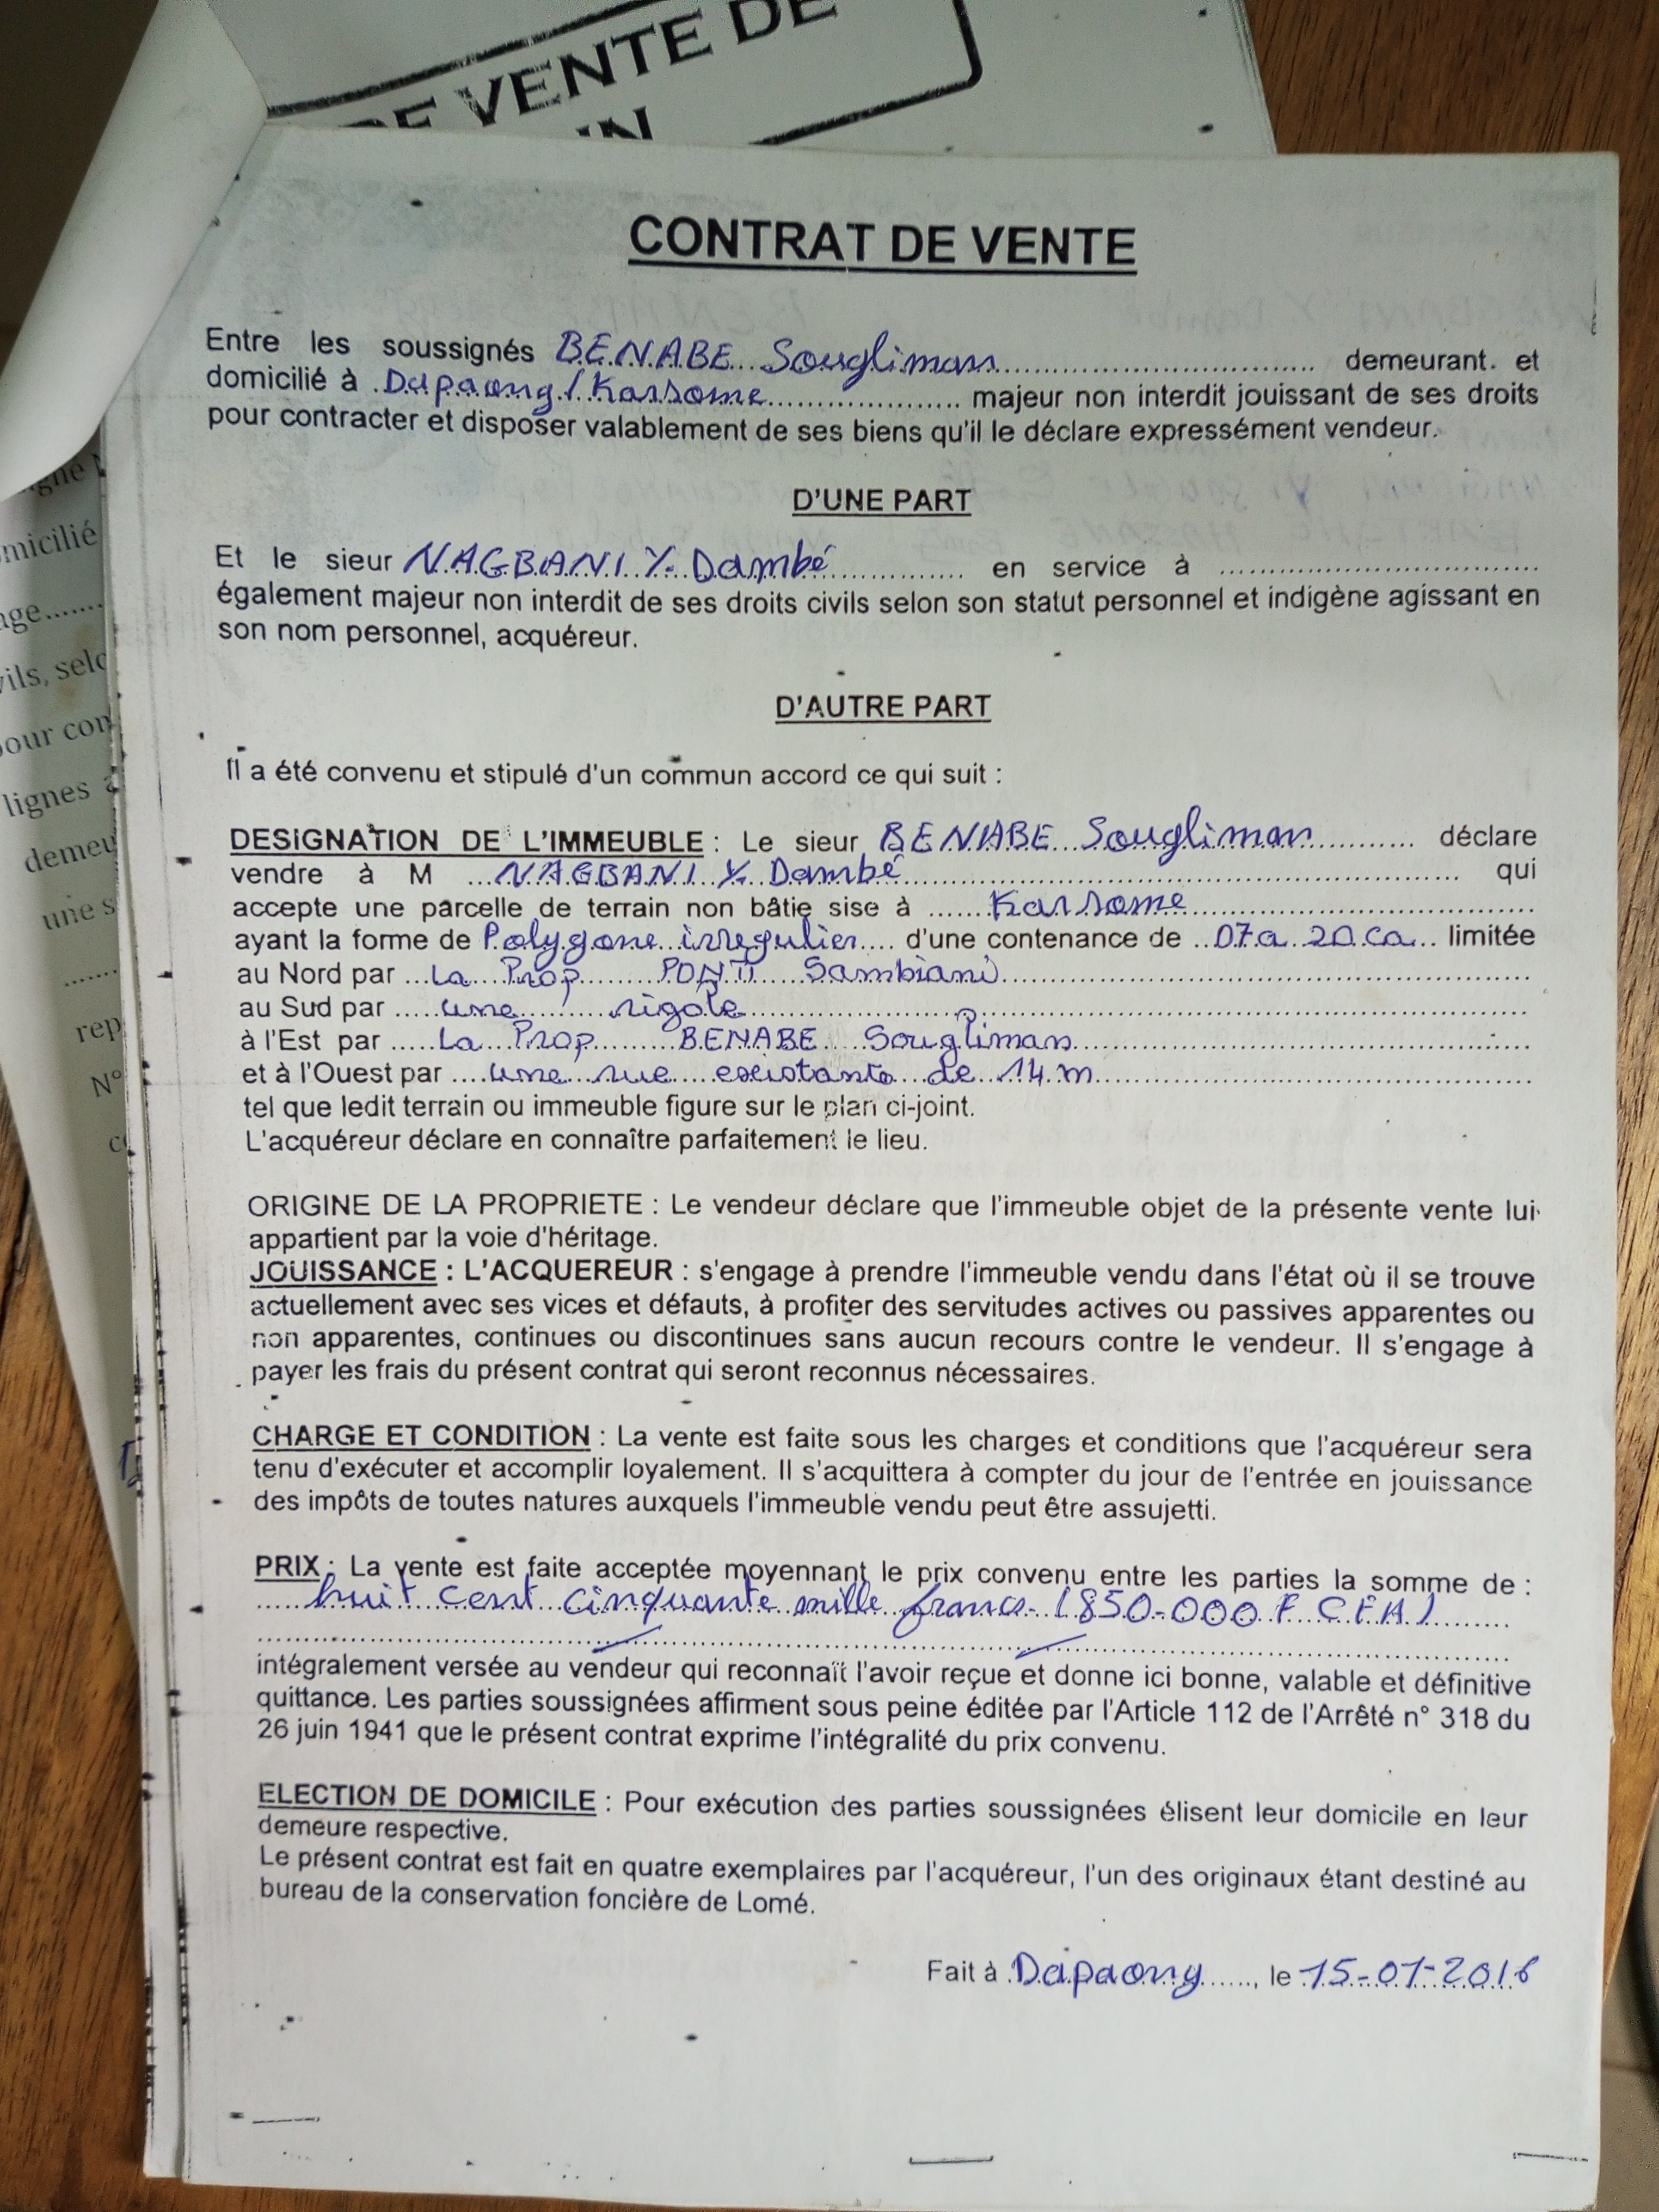 DE VENTE DE
CONTRAT DE VENTE
Entre les soussignés BENABE Sougliman demeurant. et
domicilié à Dapaong / Karsome majeur non interdit jouissant de ses droits
pour contracter et disposer valablement de ses biens qu'il le déclare expressément vendeur.
D'UNE PART
Et le sieur NAGBANI Y. Dambé en service à ........
également majeur non interdit de ses droits civils selon son statut personnel et indigène agissant en
son nom personnel, acquéreur.
D'AUTRE PART
Il a été convenu et stipulé d'un commun accord ce qui suit :
DESIGNATION DE L'IMMEUBLE : Le sieur BENABE Sougliman déclare
vendre à M NAGBANI Y. Dambé qui
accepte une parcelle de terrain non bâtie sise à Karsome
ayant la forme de Polygone irregulier d'une contenance de 07a 20ca limitée
au Nord par La Prop Sambiani
au Sud par une rigole
à l'Est par La Prop BENABE Sougliman
et à l'Ouest par une rue existante de 14 m
tel que ledit terrain ou immeuble figure sur le plan ci-joint.
L'acquéreur déclare en connaître parfaitement le lieu.
ORIGINE DE LA PROPRIETE : Le vendeur déclare que l'immeuble objet de la présente vente lui
appartient par la voie d'héritage.
JOUISSANCE : L'ACQUEREUR : s'engage à prendre l'immeuble vendu dans l'état où il se trouve
actuellement avec ses vices et défauts, à profiter des servitudes actives ou passives apparentes ou
non apparentes, continues ou discontinues sans aucun recours contre le vendeur. Il s'engage à
payer les frais du présent contrat qui seront reconnus nécessaires.
CHARGE ET CONDITION : La vente est faite sous les charges et conditions que l'acquéreur sera
tenu d'exécuter et accomplir loyalement. Il s'acquittera à compter du jour de l'entrée en jouissance
des impôts de toutes natures auxquels l'immeuble vendu peut être assujetti.
PRIX : La vente est faite acceptée moyennant le prix convenu entre les parties la somme de :
huit cent cinquante mille francs (850.000 F CFA)
intégralement versée au vendeur qui reconnaît l'avoir reçue et donne ici bonne, valable et définitive
quittance. Les parties soussignées affirment sous peine éditée par l'Article 112 de l'Arrêté n° 318 du
26 juin 1941 que le présent contrat exprime l'intégralité du prix convenu.
ELECTION DE DOMICILE : Pour exécution des parties soussignées élisent leur domicile en leur
demeure respective.
Le présent contrat est fait en quatre exemplaires par l'acquéreur, l'un des originaux étant destiné au
bureau de la conservation foncière de Lomé.
Fait à Dapaong, le 15-01-2016
micilié
pour con
lignes
demeu
une s
rep
N°